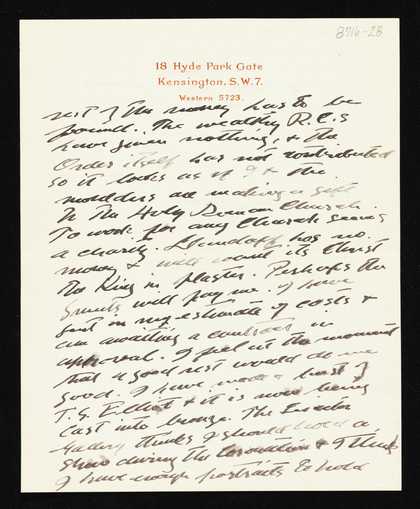 8716-28
18 Hyde Park Gate
Kensington, S.W.7.
Western 5723.
rest of the money has to be
found. The wealthy R.C.s
have given nothing, & the
Order itself has not contributed
so it looks as if I & the
moulders are making a gift
to the Holy Roman Church.
To work for any Church
a charity. has no
money & will its Christ
the King in plaster. Perhaps the
will pay me. I have
sent in my estimate of costs &
am awaiting a contract in
approval. I feel at the moment
that a good rest would do me
good. I have made a bust of
T.S. Elliot & it is now being
cast into bronze. The Leicester
Gallery thinks I should hold a
show during the Coronation & I think
I have enough portraits to hold